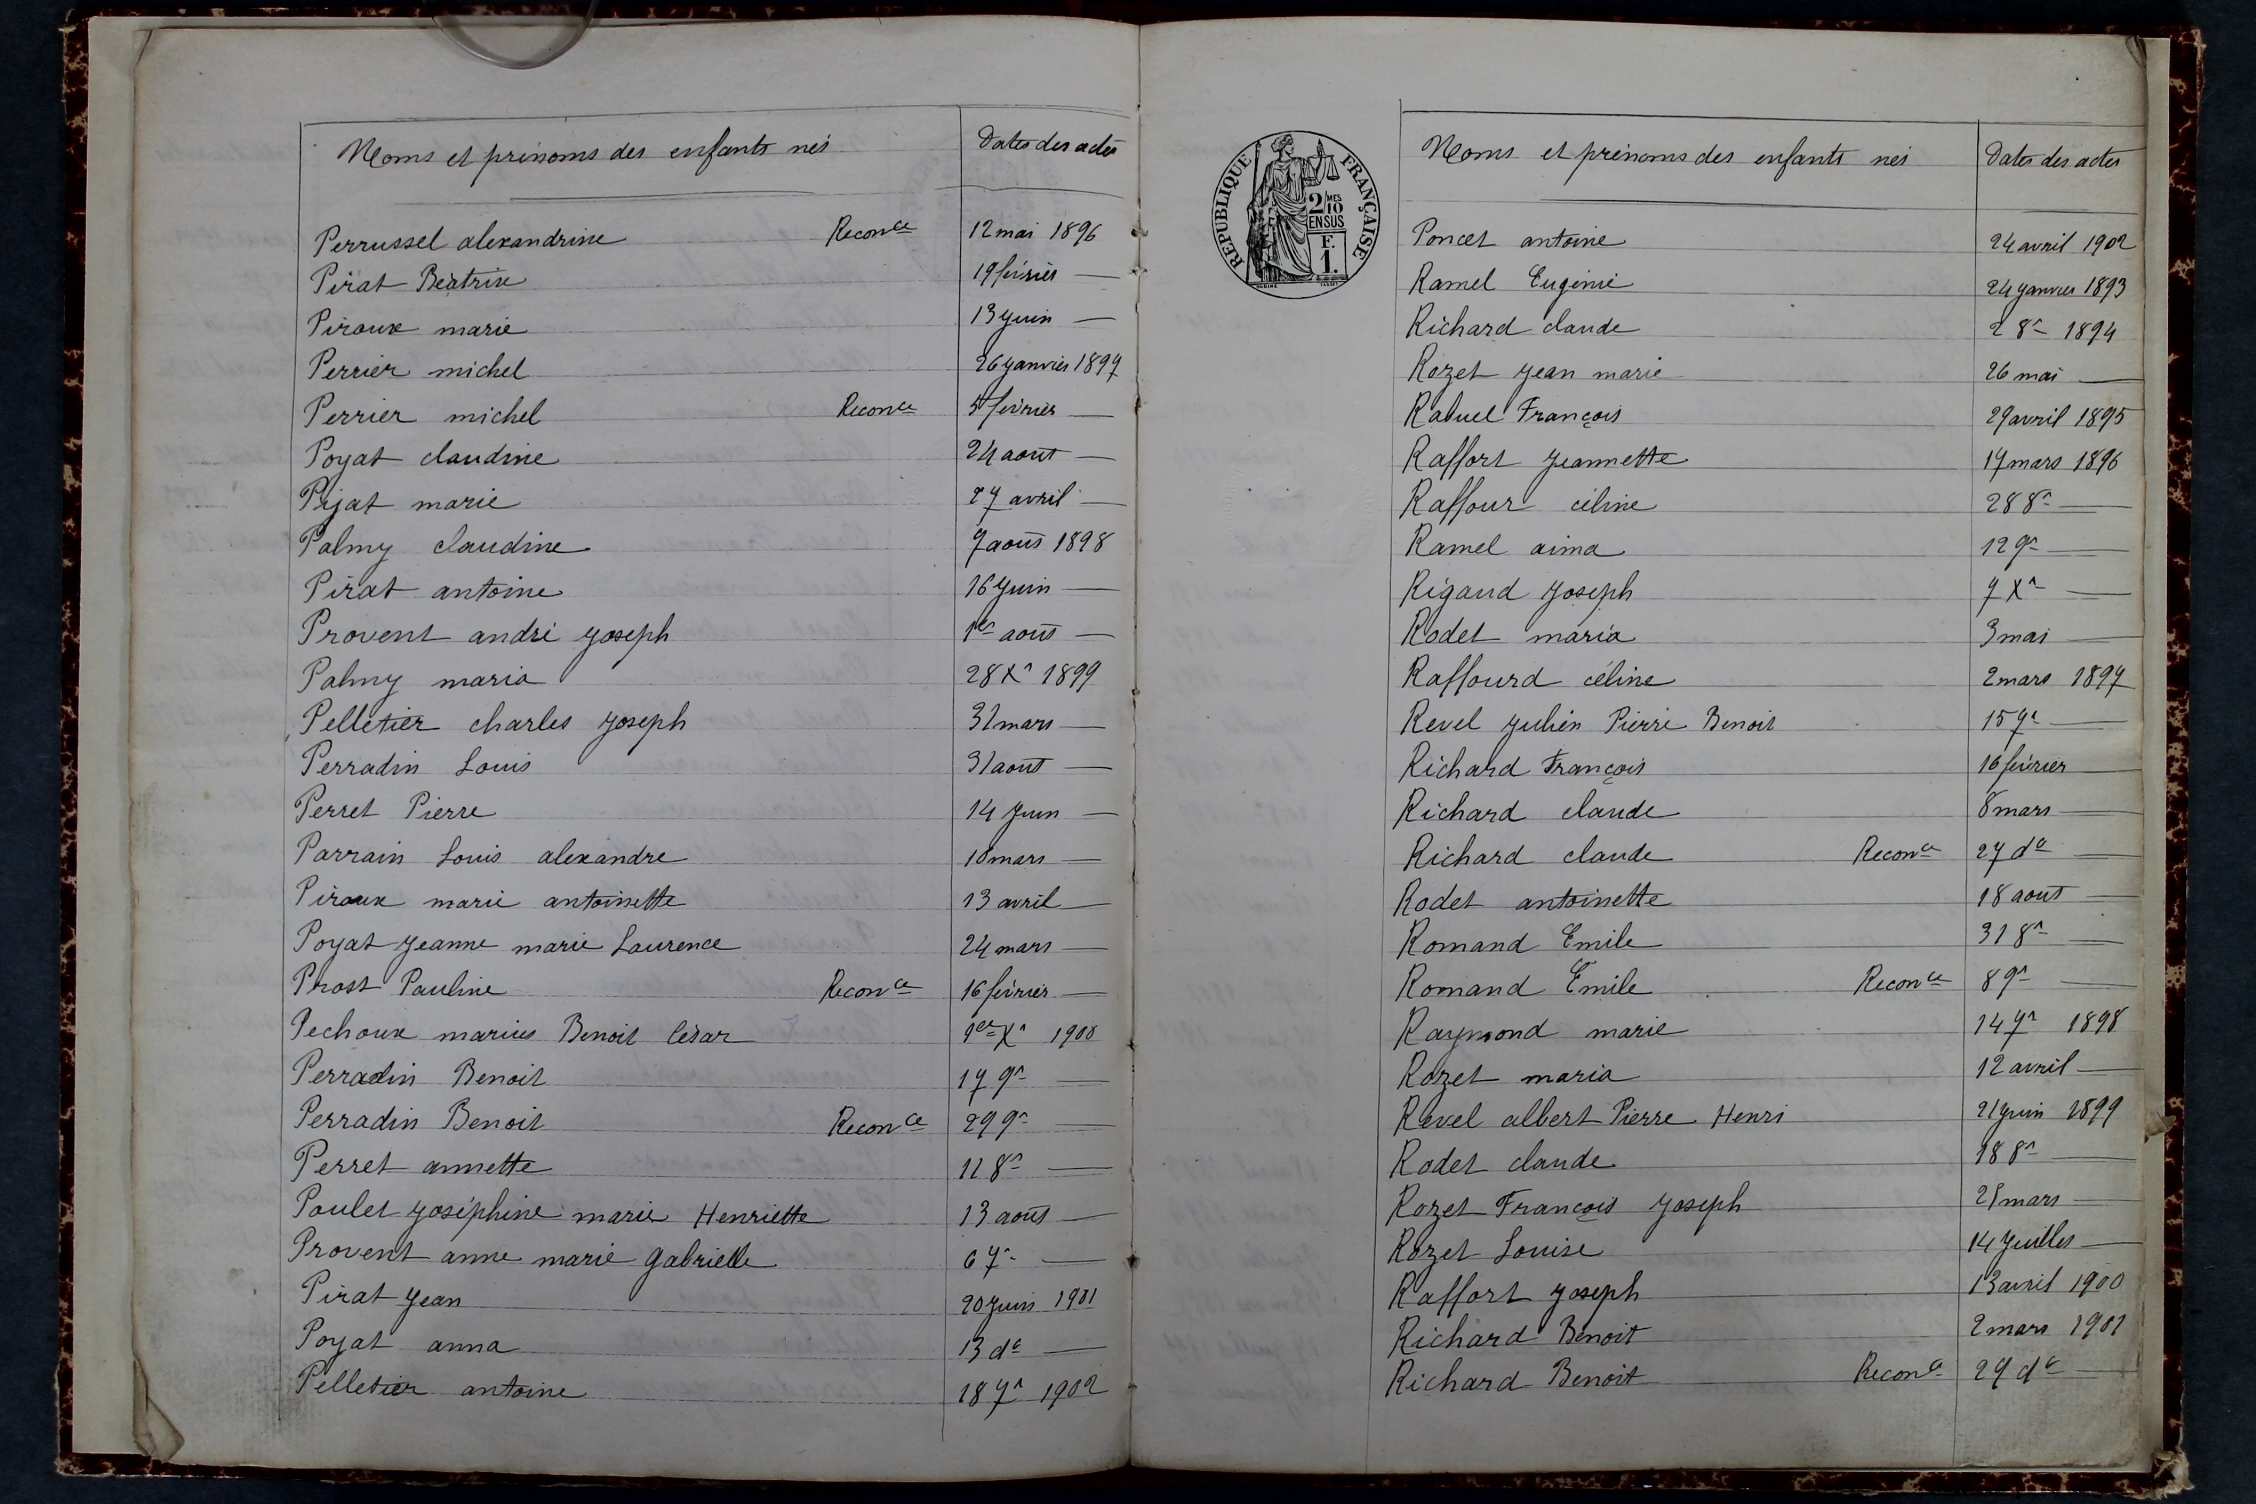 Noms et prénoms des enfants nés Dates des actes
Perrussel alexandrine Reconce 12 mai 1896
Pirat Béatrix 19 février —
Piroux marie 13 juin —
Perrier michel 26 janvier 1897
Perrier michel Reconce 5 février —
Poyat claudine 24 août —
Pijat marie 27 avril —
Palmy claudine 7 août 1898
Pirat antoine 16 juin —
Provent andré joseph 1er août —
Palmy maria 28 Xr 1899
Pelletier charles joseph 31 mars —
Perradin Louis 31 août —
Perret Pierre 14 juin —
Parrain Louis alexandre 10 mars —
Piroux marie antoinette 13 avril —
Poyat jeanne marie Laurence 24 mars —
Prost Pauline Reconce 16 février —
Pechoux marius Benoit César 1er Xr 1900
Perradin Benoit 17 9r —
Perradin Benoit Reconce 29 9r —
Perret annette 11 8r —
Poulet joséphine marie Henriette 13 août —
Provent anne marie gabrielle 6 7r —
Pirat jean 20 juin 1901
Poyat anna 13 do —
Pelletier antoine 18 7r 1902
REPUBLIQUE FRANÇAISE
2/10 MES
EN SUS
F.
1.
Noms et prénoms des enfants nés Dates des actes
Poncet antoine 24 avril 1902
Ramel Eugénie 24 janvier 1893
Richard claude 2 8r 1894
Rozet jean marie 26 mai —
Rabuel François 29 avril 1895
Raffort jeannette 17 mars 1896
Raffour céline 28 8r —
Ramel aima 12 9r —
Rigaud joseph 7 Xr —
Rodet maria 3 mai —
Raffourd céline 2 mars 1897
Revel julien Pierre Benoit 15 7r —
Richard François 16 février —
Richard claude 8 mars —
Richard claude Reconce 27 do —
Rodet antoinette 18 aout —
Romand Emile 31 8r —
Romand Emile Reconce 8 9r —
Raymond marie 14 7r 1898
Rozet maria 12 avril —
Revel albert Pierre Henri 21 juin 1899
Rodet claude 18 8r —
Rozet François joseph 28 mars —
Rozet Louise 14 juillet —
Raffort joseph 13 avril 1900
Richard Benoit 2 mars 1901
Richard Benoit Reconce 29 do —